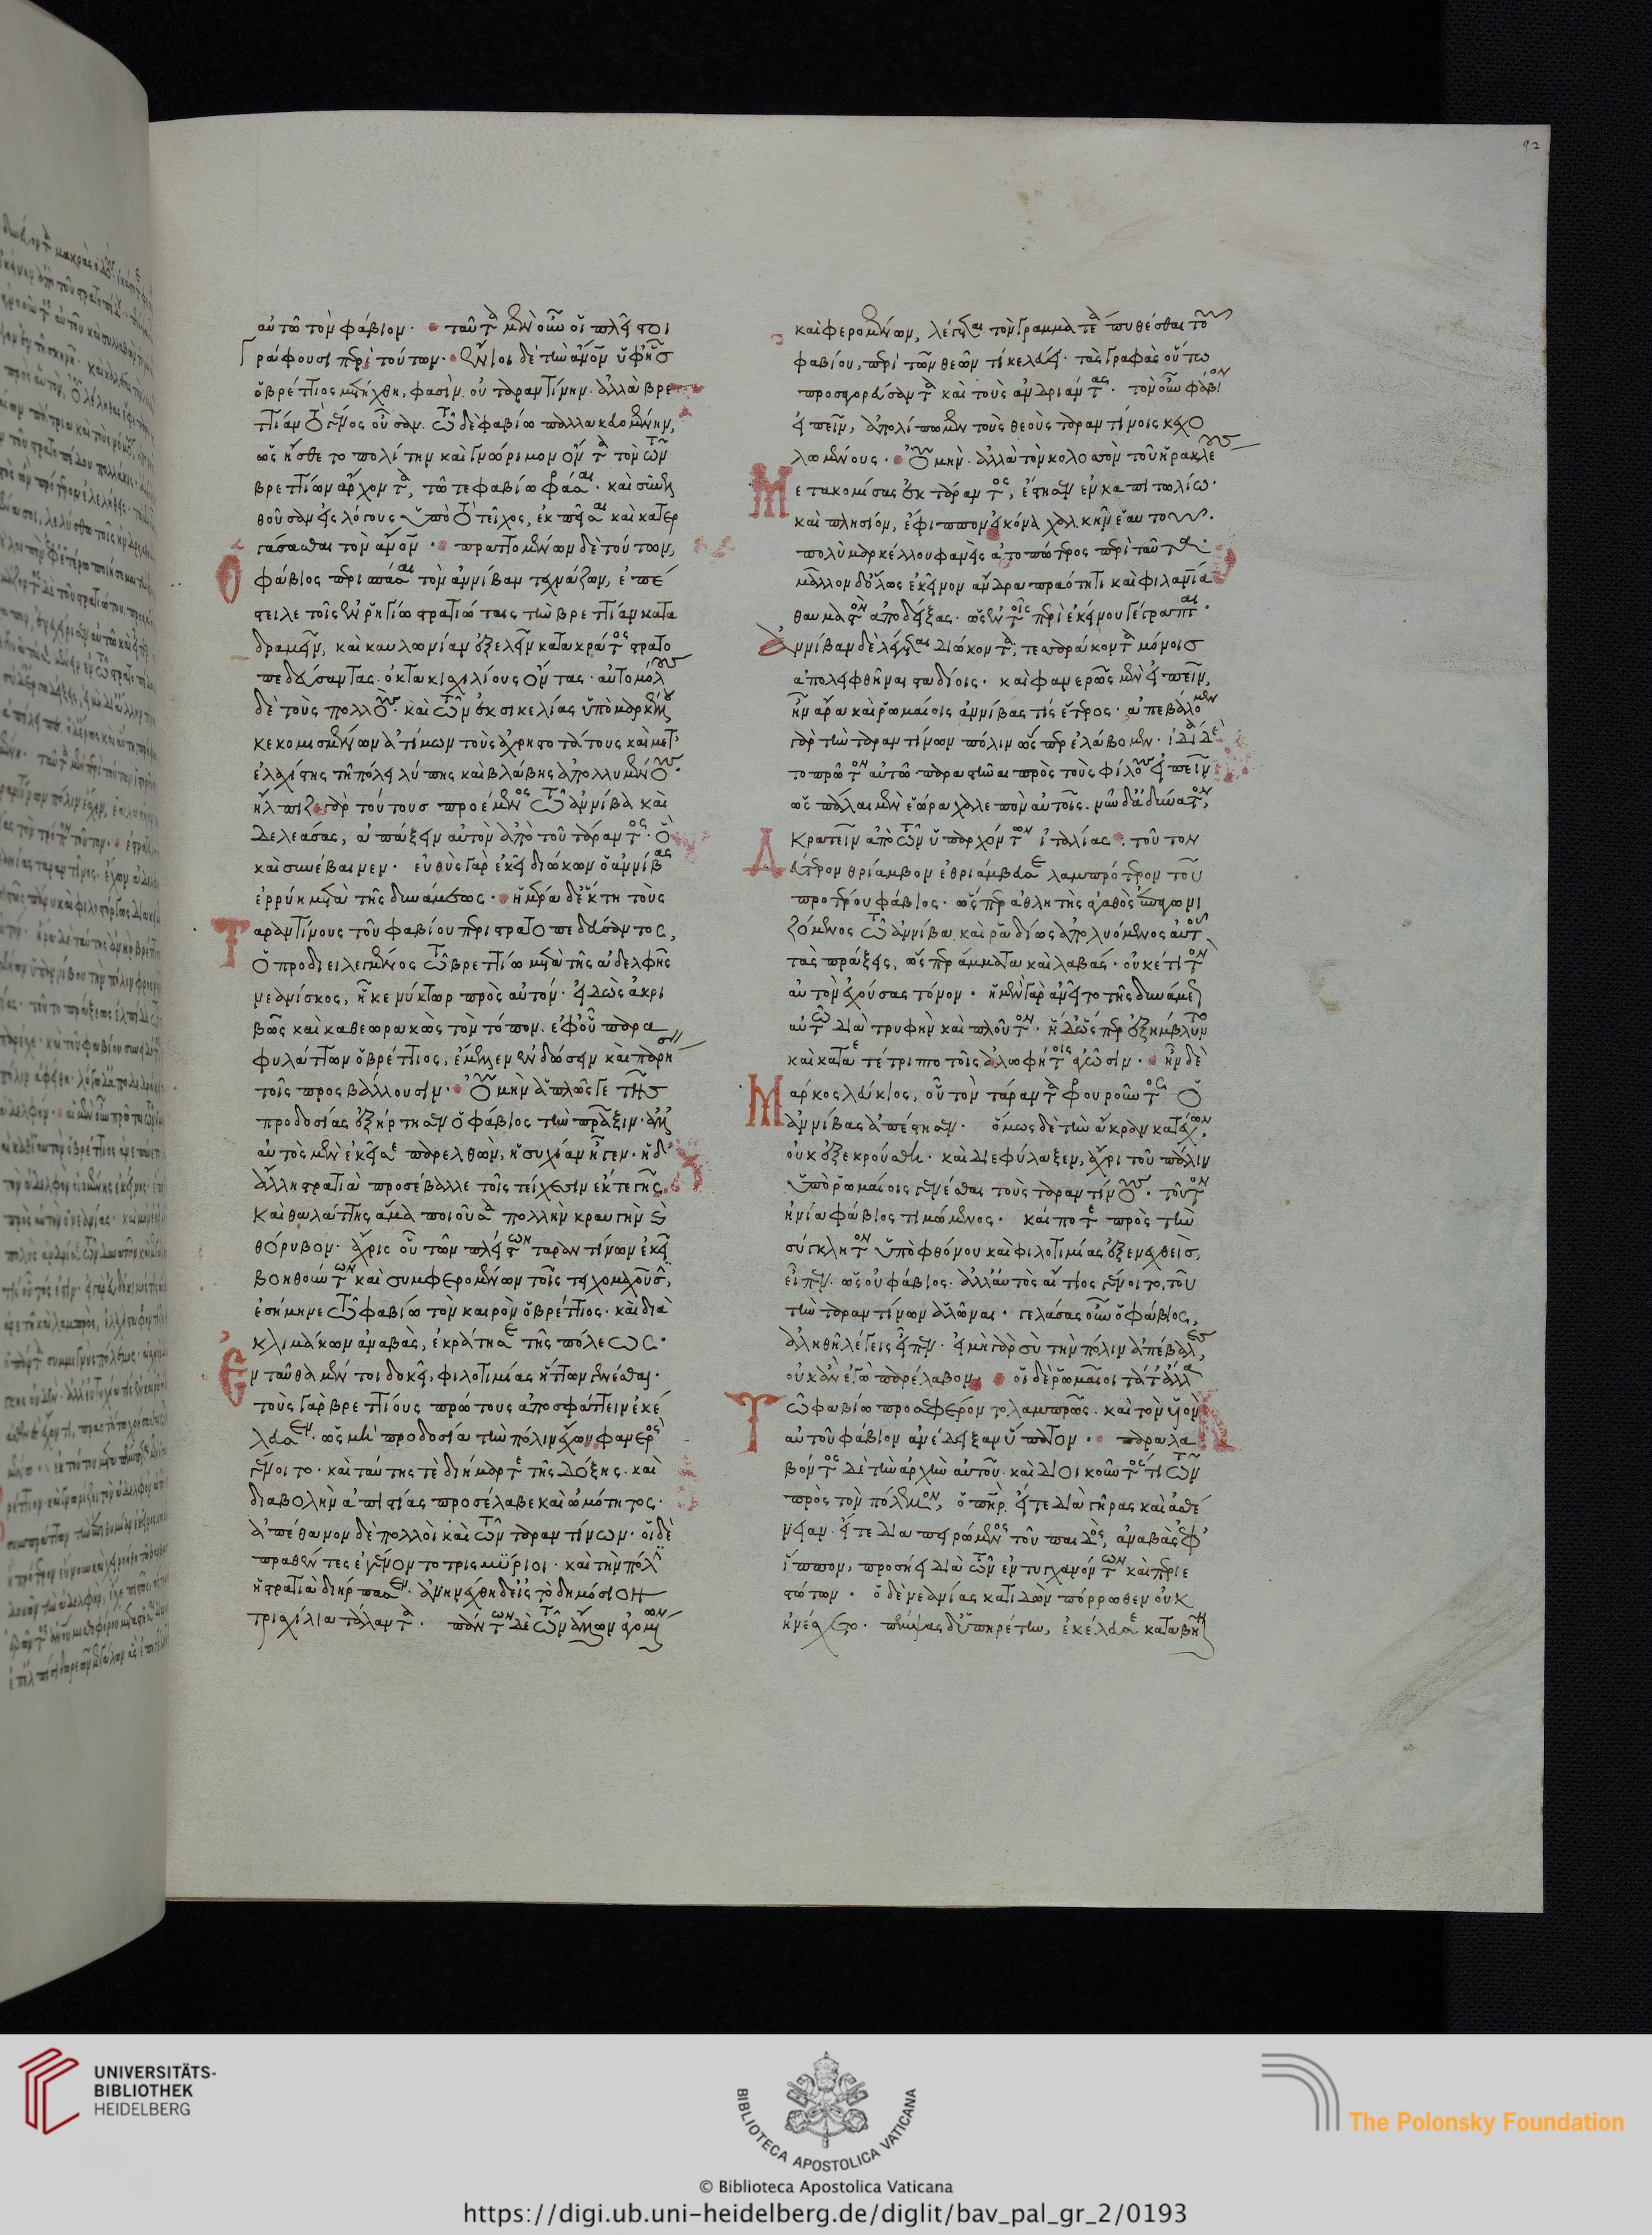 αὐτῶ τὸν φάβιον. ταῦτα μὲν οὖν οἱ πλεῖστοι
γράφουσι περὶ τούτων. ἔνιοι δὲ τὴν ἄνον ὑφ' ἧς
ὁ βρέττιος μετήχθη, φασίν οὐ ταραντίνην. ἀλλὰ βρε
τίαν τὸ γένος οὖσαν. τῶ δὲ φαβίω παλλακευομένην,
ὡς ἤσθετο πολίτην καὶ γνώριμον ὄντα τὸν τῶν
βρεττίων ἄρχοντα, τῶ τε φαβίω φράσαι. καὶ συνελ
θοῦσαν εἰς λόγους ὑπὸ τὸ τεῖχος, ἐκπεῖσαι καὶ κατερ
γάσασθαι τὸν ἄνον. πραττομένων δὲ τούτων,
ὁ φάβιος περισπάσαι τὸν ἀννίβαν τεχνάζων, ἐπέ
στειλε τοῖς ἐν ῥηγίω στρατιώταις τὴν βρεττίαν κατα
δραμεῖν, καὶ καυλωνίαν ἐξελεῖν κατακράτος στρατο
πεδεύσαντας. ὀκτακισχιλίους ὄντας. αὐτομόλους
δὲ τοὺς πολλούς. καὶ τῶν ἐκ σικελίας ὑπὸ μαρκέλλου
κεκομισμένων ἀτίμων τοὺς ἀχρηστοτάτους καὶ μετ'
ἐλαχίστης τῆ πόλει λύπης καὶ βλάβης ἀπολλυμένους.
ἤλπιζε γὰρ τούτους προέμενος τῶ ἀννίβα καὶ
δελεάσας, ἀπάξειν αὐτὸν ἀπὸ τοῦ τάραντος. ὃ
καὶ συνέβαινεν. εὐθὺς γὰρ ἐκεῖ διώκων ὁ ἀννίβας
ἐρρύη μετὰ τῆς δυνάμεως. ἡμέρα δ' ἕκτη τοὺς
ταραντίνους τοῦ φαβίου περιστρατοπεδεύσαντος,
ὁ προδιειλεγμένος τῶ βρεττίω μετὰ τῆς ἀδελφῆς
νεανίσκος, ἧκε νύκτωρ πρὸς αὐτόν. εἰδὼς ἀκρι
βῶς καὶ καθεωρακὼς τὸν τόπον. ἐφ' οὗ παρα
φυλάττων ὁ βρέττιος, ἔμελλεν ἐνδώσειν καὶ παρήσειν
τοῖς προσβάλλουσιν. οὐ μὴν ἁπλῶς γε τῆς
προδοσίας ἐξήρτησεν ὁ φάβιος τὴν πρᾶξιν. ἀλλ'
αὐτὸς μὲν ἐκεῖσε παρελθὼν, ἡσυχίαν ἦγεν. ἡ δ'
ἄλλη στρατιὰ προσέβαλλε τοῖς τείχεσιν ἔκ τε γῆς
καὶ θαλάττης ἅμα ποιοῦσα πολλὴν κραυγὴν καὶ
θόρυβον. ἄχρις οὗ τῶν πλείστων ταραντίνων ἐκεῖ
βοηθούντων καὶ συμφερομένων τοῖς τειχομαχοῦσι,
ἐσήμηνε τῶ φαβίω τὸν καιρὸν ὁ βρέττιος. καὶ διὰ
κλιμάκων ἀναβὰς, ἐκράτησε τῆς πόλεως.
ἐνταῦθα μέντοι δοκεῖ, φιλοτιμίας ἥττων γενέσθαι.
τοὺς γὰρ βρεττίους πρώτους ἀποσφάττειν ἐκέ
λευσεν. ὡς μὴ προδοσία τὴν πόλιν ἔχων φανερὸς
γένοιτο. καὶ ταύτης τὲ διήμαρτε τῆς δόξης. καὶ
διαβολὴν ἀπιστίας προσέλαβε καὶ ὠμότητος.
ἀπέθανον δὲ πολλοὶ καὶ τῶν ταραντίνων. οἱ δὲ
πραθέντες ἐγένοντο τρισμύριοι. καὶ τὴν πόλιν
ἡ στρατιὰ διήρπασεν. ἀνηνέχθη δ' εἰς τὸ δημόσιον
τρισχίλια τάλαντα. πάντων δὲ τῶν ἄλλων ἀγομένων
92
καὶ φερομένων, λέγεται τὸν γραμματέα πυθέσθαι τοῦ
φαβίου, περὶ τῶν θεῶν τί κελεύει. τὰς γραφὰς οὕτω
προσαγορεύσαντα καὶ τοὺς ἀνδριάντας. τὸν οὖν φάβιον
εἰπεῖν, ἀπολίπωμεν τοὺς θεοὺς ταραντίνοις κεχο
λωμένους. οὐ μὴν ἀλλὰ τὸν κολοσσὸν τοῦ ἡρακλέους
μετακομίσας ἐκ τάραντος, ἔστησεν ἐν καπιτωλίω.
καὶ πλησίον, ἔφιππον εἰκόνα χαλκῆν ἑαυτοῦ.
πολὺ μαρκέλλου φανεὶς ἀτοπώτερος περὶ ταῦτα.
μᾶλλον δ' ὅλως ἐκεῖνον ἄνδρα πραότητι καὶ φιλανία
θαυμαστὸν ἀποδείξας. ὡς ἐν τοῖς περὶ ἐκείνου γέγραπται.
ἀννίβαν δὲ λέγεται διώκοντα, τεσσαράκοντα μόνοις
ἀπολειφθῆναι σταδίοις. καὶ φανερῶς μὲν εἰπεῖν,
ἦν ἄρα καὶ ῥωμαίοις ἀννίβας τίς ἕτερος. ἀπεβάλομεν
γὰρ τὴν ταραντίνων πόλιν ὡς παρελάβομεν. ἰδία δὲ
τὸ πρῶτον αὐτῶ παραστῆναι πρὸς τοὺς φίλους εἰπεῖν
ὡς πάλαι μὲν ἑώρα χαλεπὸν αὐτοῖς. νῦν δ' ἀδύνατον,
κρατεῖν ἀπὸ τῶν ὑπαρχόντων ἰταλίας. τοῦτον
δεύτερον θρίαμβον ἐθριάμβευσε λαμπρότερον τοῦ
προτέρου φάβιος. ὥσπερ ἀθλητὴς ἀγαθὸς ἐπαγωνι
ζόμενος τῶ ἀννίβα. καὶ ῥαδίως ἀπολυόμενος αὐτοῦ
τὰς πράξεις, ὥσπερ ἅμματα καὶ λαβάς. οὐκέτι τὸν
αὐτὸν ἐχούσας τόνον. ἡ μὲν γὰρ ἀνεῖτο τῆς δυνάμεως
αὐτῶ διὰ τρυφὴν καὶ πλοῦτον. ἡ δ' ὥσπερ ἐξημβλυντο
καὶ κατατέτριπτο τοῖς ἀλωφήτοις ἀγῶσιν. ἦν δὲ
μάρκος λεύκιος, οὗ τὸν τάραντα φρουροῦντος ὁ
ἀννίβας ἀπέστησεν. ὅμως δὲ τὴν ἄκραν κατέχων,
οὐκ ἐξεκρούσθη. καὶ διεφύλαξεν, ἄχρι τοῦ πάλιν
ὑπὸ ῥωμαίοις γενέσθαι τοὺς ταραντίνους. τοῦτον
ἠνία φάβιος τιμώμενος. καί ποτε πρὸς τὴν
σύγκλητον ὑπὸ φθόνου καὶ φιλοτιμίας ἐξενεχθεὶς,
εἶπεν. ὡς οὐ φάβιος. ἀλλ' αὐτὸς αἴτιος γένοιτο, τοῦ
τὴν ταραντίνων ἁλῶναι. γελάσας οὖν ὁ φάβιος,
ἀληθῆ λέγεις εἶπεν. εἰ μὴ γὰρ σὺ τὴν πόλιν ἀπέβαλες,
οὐκ ἂν ἐγὼ παρέλαβον. οἱ δὲ ῥωμαῖοι τά τ' ἄλλα
τῶ φαβίω προσεφέροντο λαμπρῶς. καὶ τὸν υἱὸν
αὐτοῦ φάβιον ἀνέδειξαν ὕπατον. παραλα
βόντος δὲ τὴν ἀρχὴν αὐτοῦ. καὶ διοικοῦντός τι τῶν
πρὸς τὸν πόλεμον, ὁ πὴρ. εἴτε διὰ γῆρας καὶ ἀσθέ
νειαν. εἴτε διαπειρώμενος τοῦ παιδὸς, ἀναβὰς ἐφ'
ἵππον, προσήει διὰ τῶν ἐντυγχανόντων καὶ περιε
στώτων. ὁ δὲ νεανίας κατιδὼν πόρρωθεν οὐκ
ἠνέσχετο. πέμψας δ' ὑπηρέτην, ἐκέλευσε καταβῆναι
UNIVERSITÄTS-
BIBLIOTHEK
HEIDELBERG
BIBLIOTECA APOSTOLICA VATICANA
The Polonsky Foundation
© Biblioteca Apostolica Vaticana
https://digi.ub.uni-heidelberg.de/diglit/bav_pal_gr_2/0193